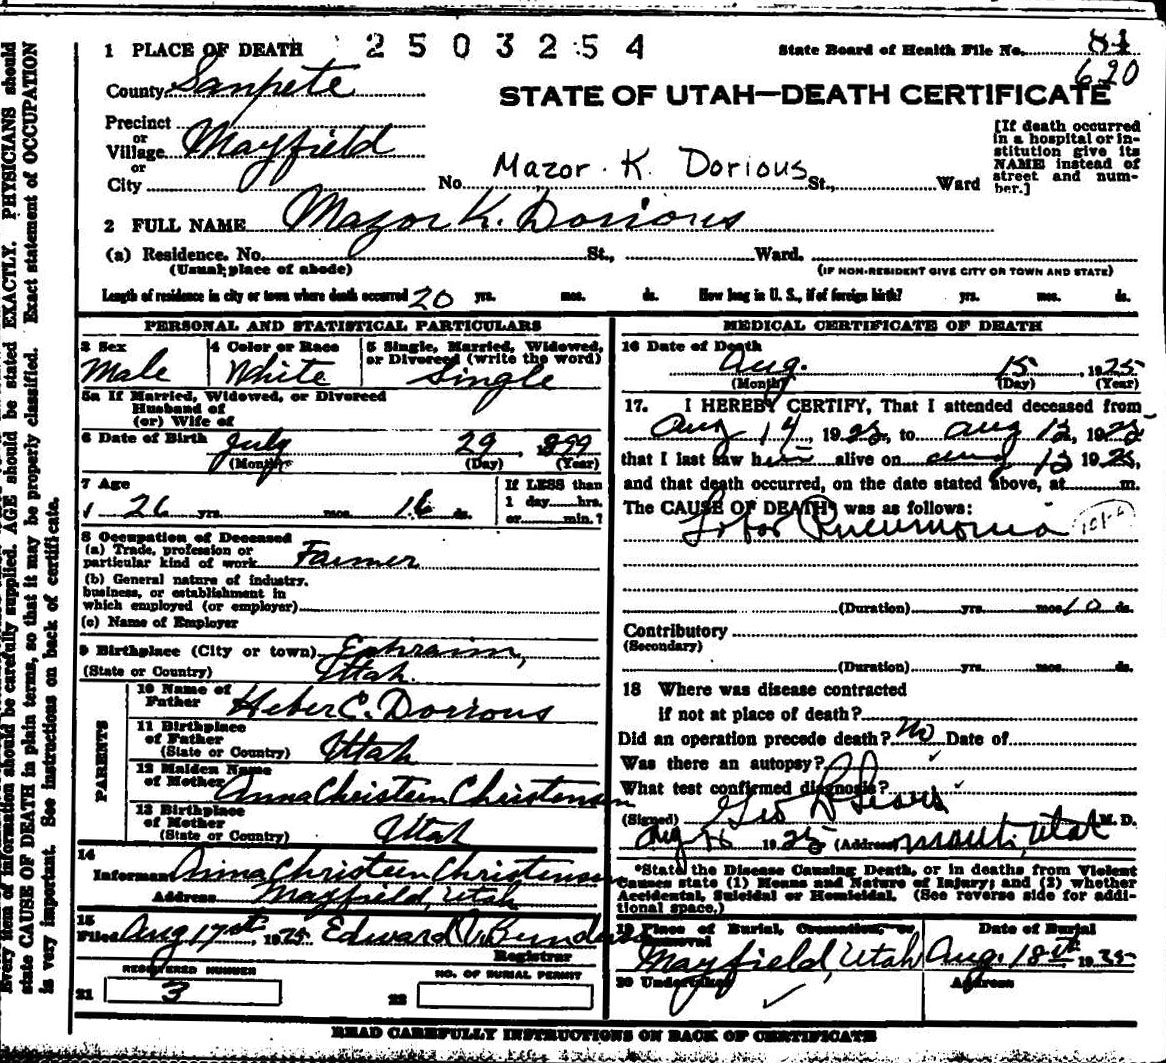 1 PLACE OF DEATH 2503254 State Board of Health File No. 81
620
County Sanpete
STATE OF UTAH—DEATH CERTIFICATE
Precinct
or
Village Mayfield
or
City No. Mazor K. Dorious St., Ward
[If death occurred
in a hospital or in-
stitution give its
NAME instead of
street and num-
ber.]
2 FULL NAME Mazor K. Dorious
(a) Residence. No. St., Ward.
(Usual place of abode) (IF NON-RESIDENT GIVE CITY OR TOWN AND STATE)
Length of residence in city or town where death occurred 20 yrs. mos. ds. How long in U. S., if of foreign birth? yrs. mos. ds.
PERSONAL AND STATISTICAL PARTICULARS
3 Sex
Male
4 Color or Race
White
5 Single, Married, Widowed,
or Divorced (write the word)
Single
5a If Married, Widowed, or Divorced
Husband of
(or) Wife of
6 Date of Birth July 29, 1899
(Month) (Day) (Year)
7 Age
26 yrs. mos. 16 ds.
If LESS than
1 day hrs.
or min.?
8 Occupation of Deceased
(a) Trade, profession or
particular kind of work Farmer
(b) General nature of industry,
business, or establishment in
which employed (or employer)
(c) Name of Employer
9 Birthplace (City or town) Ephraim,
(State or Country) Utah.
PARENTS
10 Name of
Father Heber C. Dorious
11 Birthplace
of Father
(State or Country) Utah
12 Maiden Name
of Mother Anna Christeen Christensen
13 Birthplace
of Mother
(State or Country) Utah
14
Informant Anna Christeen Christensen
Address Mayfield, Utah
15
Filed Aug 17st, 1925 Edward
Registrar
REGISTERED NUMBER
21 3
NO. OF BURIAL PERMIT
22
MEDICAL CERTIFICATE OF DEATH
16 Date of Death
Aug. 15, 1925
(Month) (Day) (Year)
17. I HEREBY CERTIFY, That I attended deceased from
Aug 14, 1925, to Aug 15, 1925
that I last saw him alive on Aug 15 1925,
and that death occurred, on the date stated above, at m.
The CAUSE OF DEATH* was as follows:
Lobar Pneumonia
(Duration) yrs. mos 10 ds.
Contributory
(Secondary)
(Duration) yrs. mos. ds.
18 Where was disease contracted
if not at place of death?
Did an operation precede death? No Date of
Was there an autopsy?
What test confirmed diagnosis?
(Signed) Geo L Sears M. D.
Aug 1925 (Address) Manti, Utah
*State the Disease Causing Death, or in deaths from Violent
Causes state (1) Means and Nature of Injury; and (2) whether
Accidental, Suicidal or Homicidal. (See reverse side for addi-
tional space.)
19 Place of Burial, Cremation, or
Removal
Mayfield, Utah
Date of Burial
Aug. 18th, 1925
20 Undertaker Address
READ CAREFULLY INSTRUCTIONS ON BACK OF CERTIFICATE
Every item of information should be carefully supplied. AGE should be stated EXACTLY. PHYSICIANS should
state CAUSE OF DEATH in plain terms, so that it may be properly classified. Exact statement of OCCUPATION
is very important. See instructions on back of certificate.